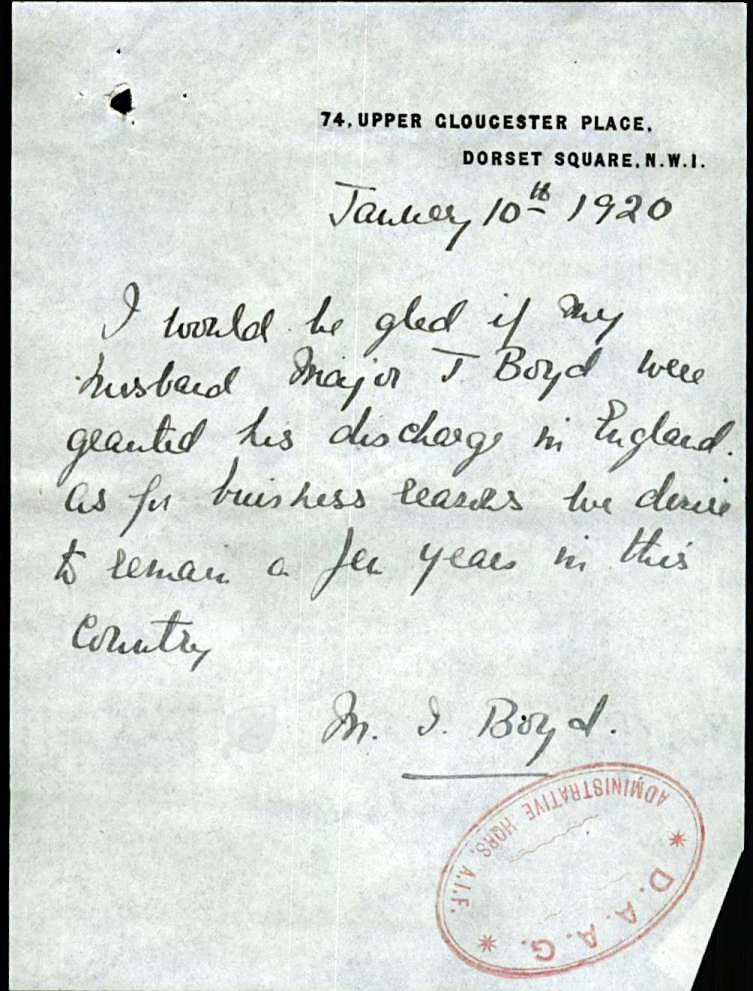 74, UPPER GLOUCESTER PLACE,
DORSET SQUARE, N.W.1.
January 10th 1920
I would be glad if my
husband Major T Boyd were
granted his discharge in England.
as for buisness reasons we desire
to remain a few years in this
Country
M. I. Boyd.
ADMINISTRATIVE HQRS. A.I.F.
D.A.A.G.